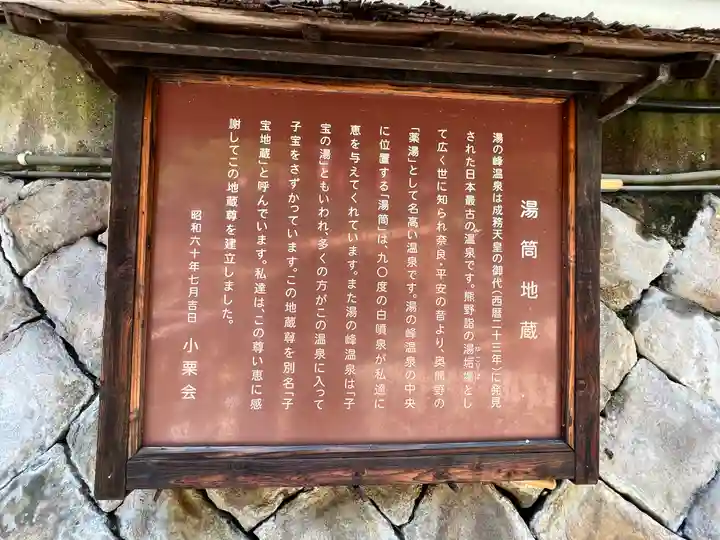 湯筒地蔵
湯の峰温泉は成務天皇の御代(西暦二十三年)に発見
された日本最古の温泉です。熊野詣の湯垢場とし
ゆごりば
て広く世に知られ奈良・平安の昔より、奥熊野の
「薬湯」として名高い温泉です。湯の峰温泉の中央
に位置する「湯筒」は、九〇度の自噴泉が私達に
恵を与えてくれています。また湯の峰温泉は「子
宝の湯」ともいわれ、多くの方がこの温泉に入って
子宝をさずかっています。この地蔵尊を別名「子
宝地蔵」と呼んでいます。私達は、この尊い恵に感
謝してこの地蔵尊を建立しました。
昭和六十年七月吉日 小栗会